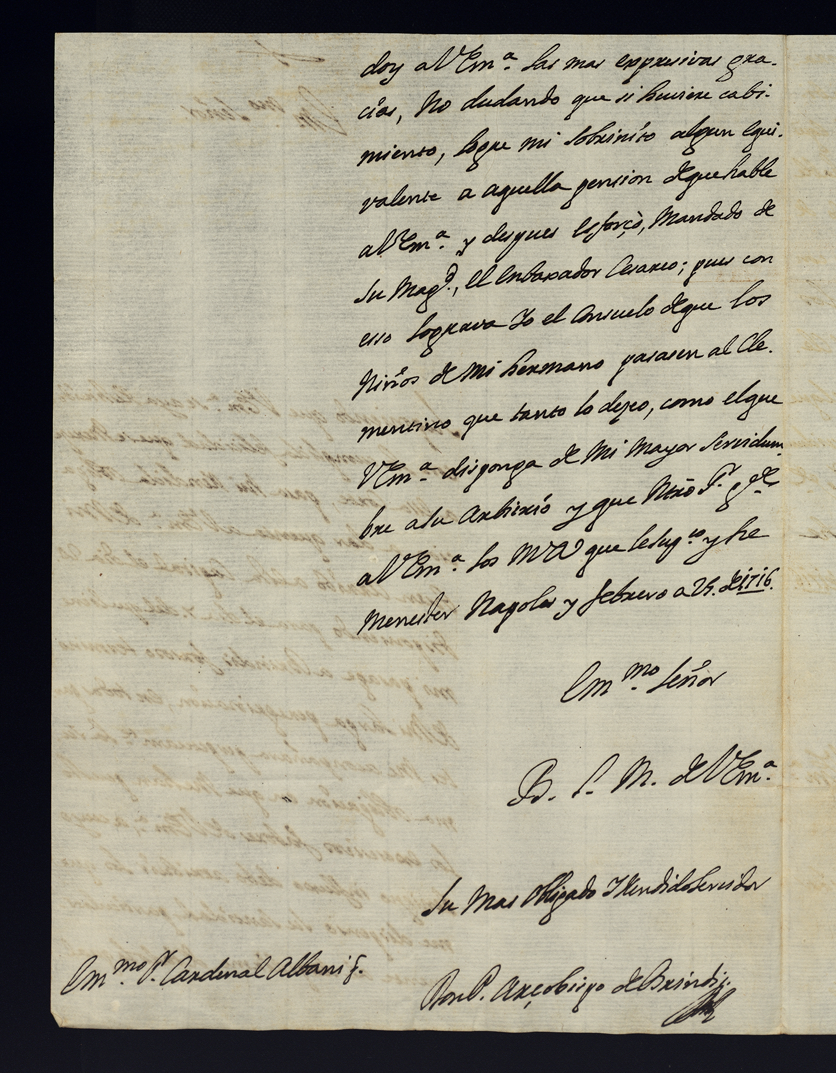 doy a V Emª. las mas expresivas gra-
cias, No dudando que si huviere cabi-
miento, logre mi sobrinito algun equi-
valente a aquella pension de que hable
a V Emª. y despues esforçò, Mandado de
su Magᵈ., el enbaxador Cesareo; pues con
esso lograva Yo el Consuelo de que los
Niños de Mi hermano pasasen al Cle-
mentino que tanto lo deseo, como el que
V Emª disponga de Mi Mayor servidum-
bre a su Arbitrio y que Ntrõ Sʳ gᵈᵉ
a V Emª. los Mˢ Aˢ que le supᶜᵒ y he
Menester Napoles y febrero a 25. de 1716.
Emmº. Señor
B. S. M. de V Emª.
Su Mas Obligado Y Rendido Servidor
Emmº. Sʳ. Cardenal Albani
P. Arçobispo de Brindiz.